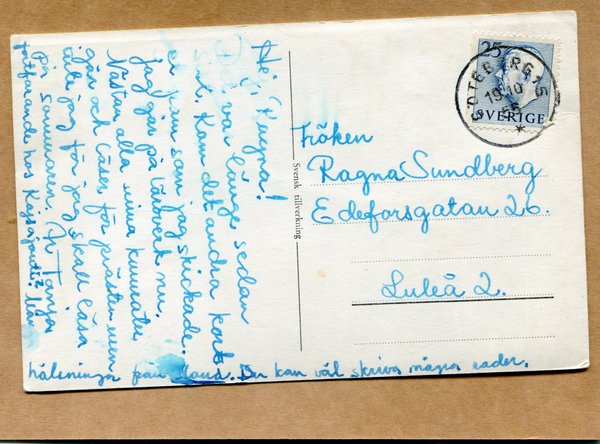 Hej Ragna!
Det var länge sedan
sist. Kom det andra kort
et fram som jag skickade.
Jag går på lärdverk nu.
Nästan alla mina kamrater
går och läser för prästen men
inte jag för jag skall läsa
på sommaren. Är Tanja
fortfarande hos
hälsningar från Maud. Du kan väl skriva några rader.
Svensk tillverkning
25
SVERIGE
GÖTEBORG 15
19 10
55
Fröken
Ragna Sundberg
Edeforsgatan 26.
Luleå 2.